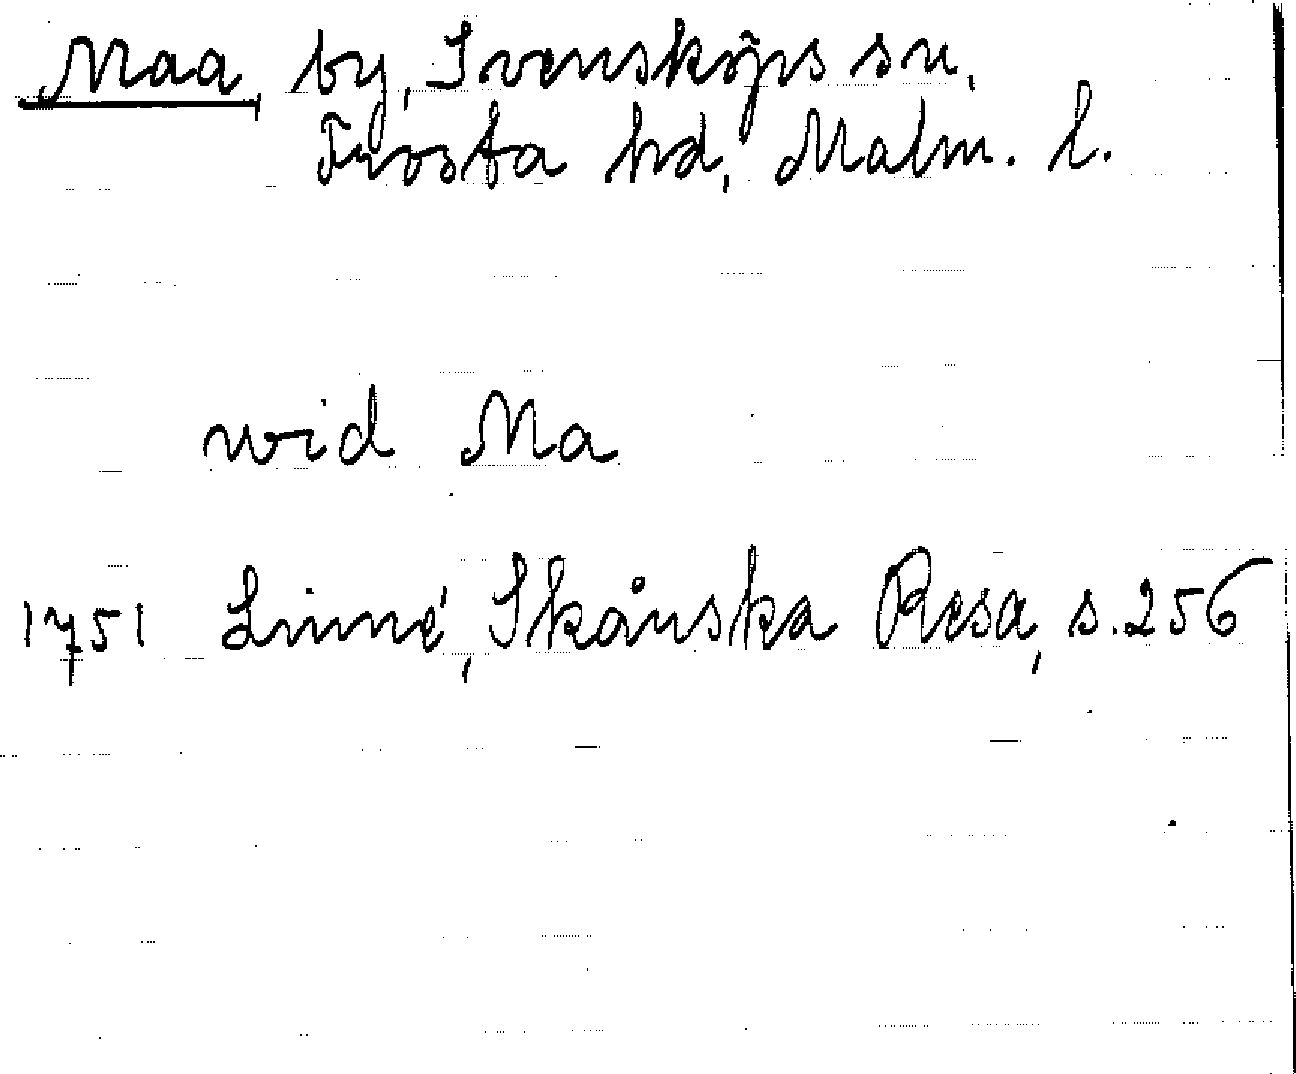 Maa, by, Svensköps sn,
Frosta hd, Malm. l.
wid Ma
1751 Linné, Skånska Resa, s. 256